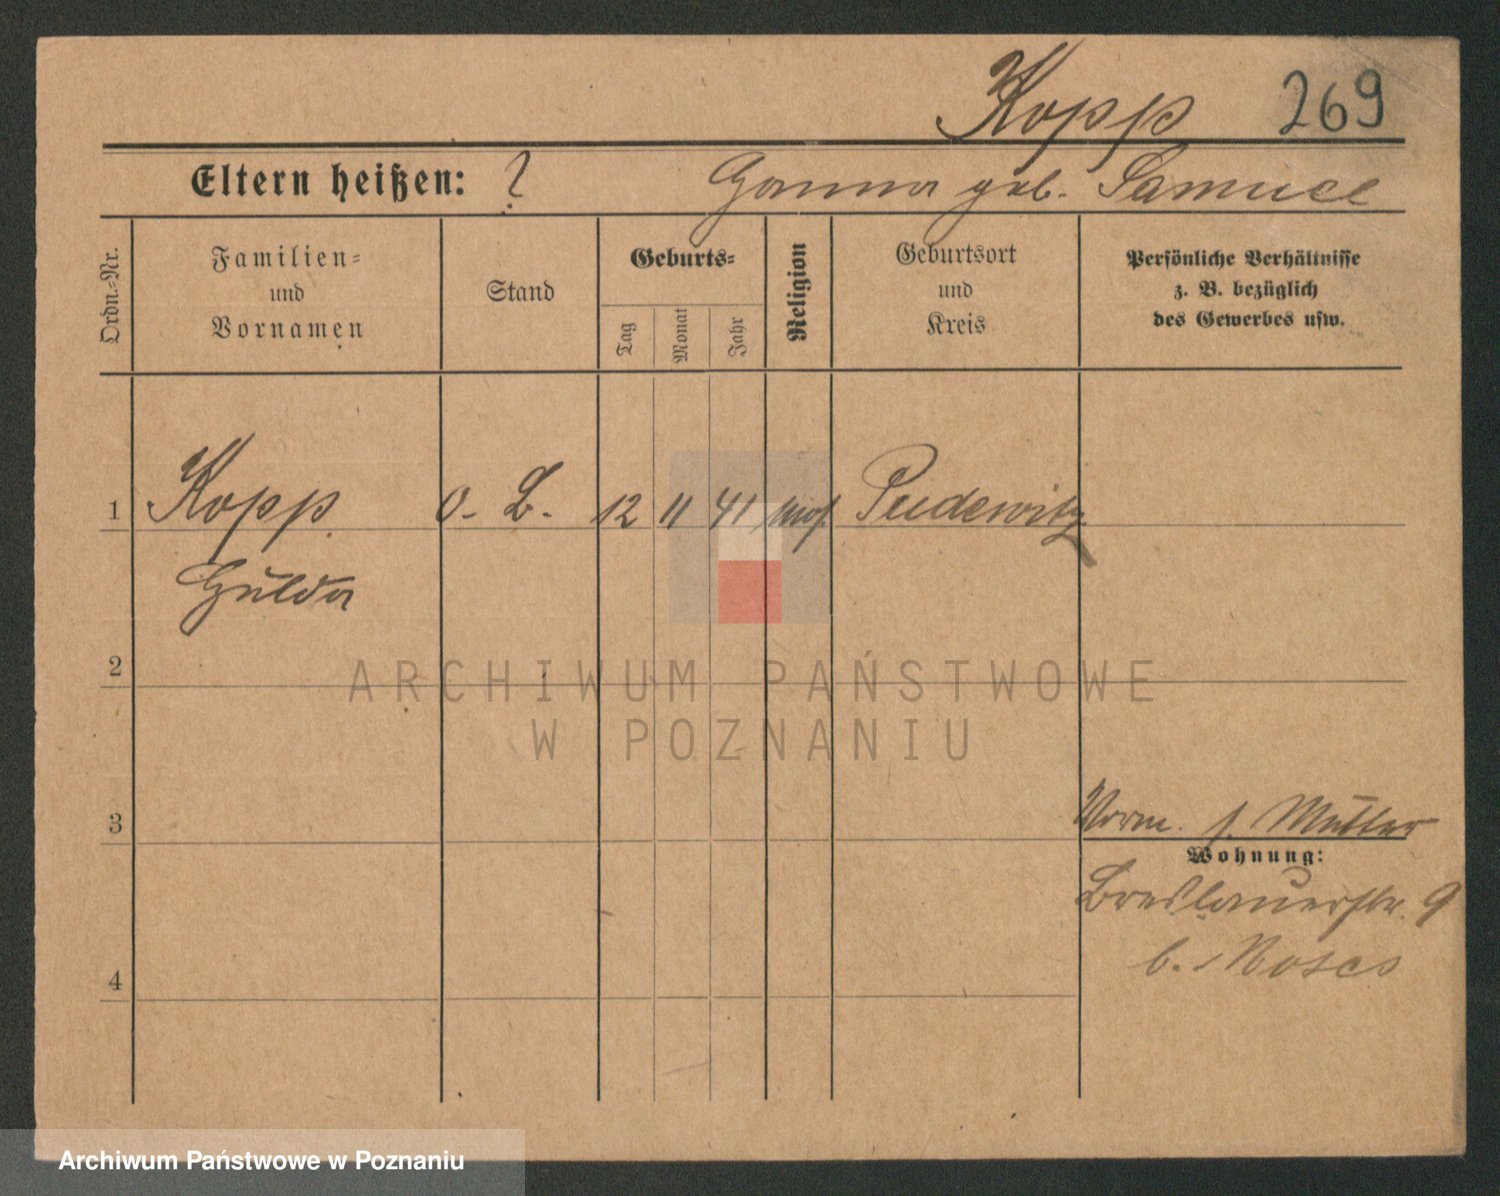 Kopp 269
Eltern heißen: ? Hanna geb. Samuel
Ordn.-Nr.
Familien-
und
Vornamen
Stand
Geburts-
Tag
Monat
Jahr
Religion
Geburtsort
und
Kreis
Persönliche Verhältnisse
z. B. bezüglich
des Gewerbes usw.
1 Kopp O. B. 12 11 41 mos. Pudewitz
Hulda
2
3
4
Vorm. s. Mutter
Wohnung:
Breslauerstr. 9
b. Moses
ARCHIWUM PAŃSTWOWE
W POZNANIU
Archiwum Państwowe w Poznaniu